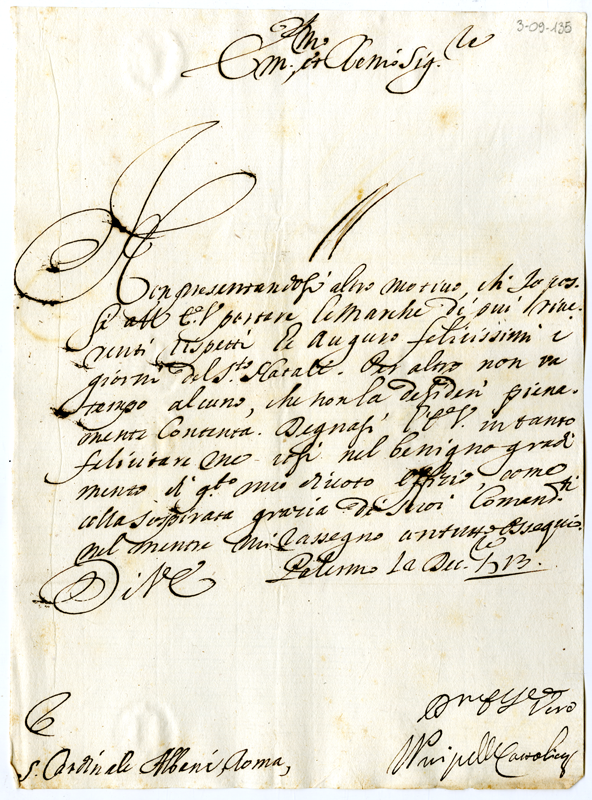 3-09-135
Em.mo et Rev.mo Sig.re
Rappresentandosi altro motivo, ch'Io pos-
sa all' E.V. portare le Marche di piu' rive-
renti rispetti Le Auguro felicissimi e
giorni del S.to Natale. Per altro non va
tempo alcuno, che non la desideri piena-
mente Contenta. Degnasi l'E.V. in tanto
felicitare me così nel benigno gradi
mento di q.to mio divoto offizio, come
colla sospirata grazia de Suoi Comandi
nel mentre mi rassegno con tutto ossequio.
Di V.E. Palermo 12 Dec. 1713.
S.r Cardinale Albani, Roma,